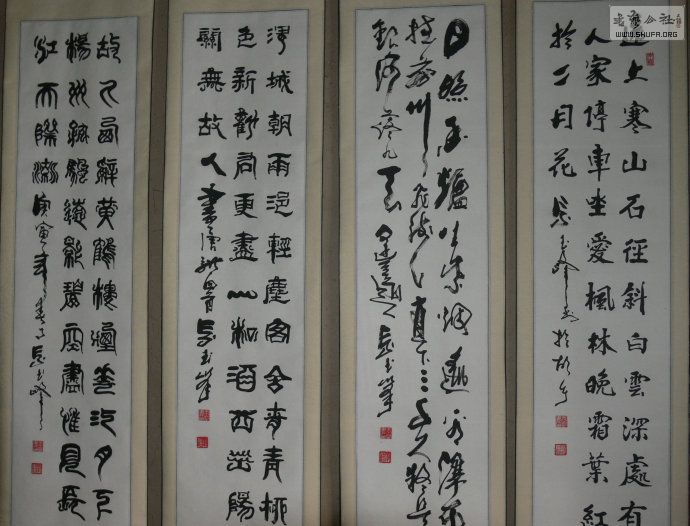 書法公社
WWW.SHUFA.ORG
遠上寒山石徑斜白雲深處有
人家停車坐愛楓林晚霜葉紅
於二月花 吳玉峰書於
日照香爐生紫烟遙看瀑布
掛前川飛流直下三千尺疑是
銀河落九天 吳玉峯
渭城朝雨浥輕塵客舍青青柳
色新勸君更盡一杯酒西出陽
關無故人 書唐詩 吳玉峯
故人西辭黃鶴樓煙花三月下
楊州孤帆遠影碧空盡惟見長
江天際流 庚寅年春 吳玉峰